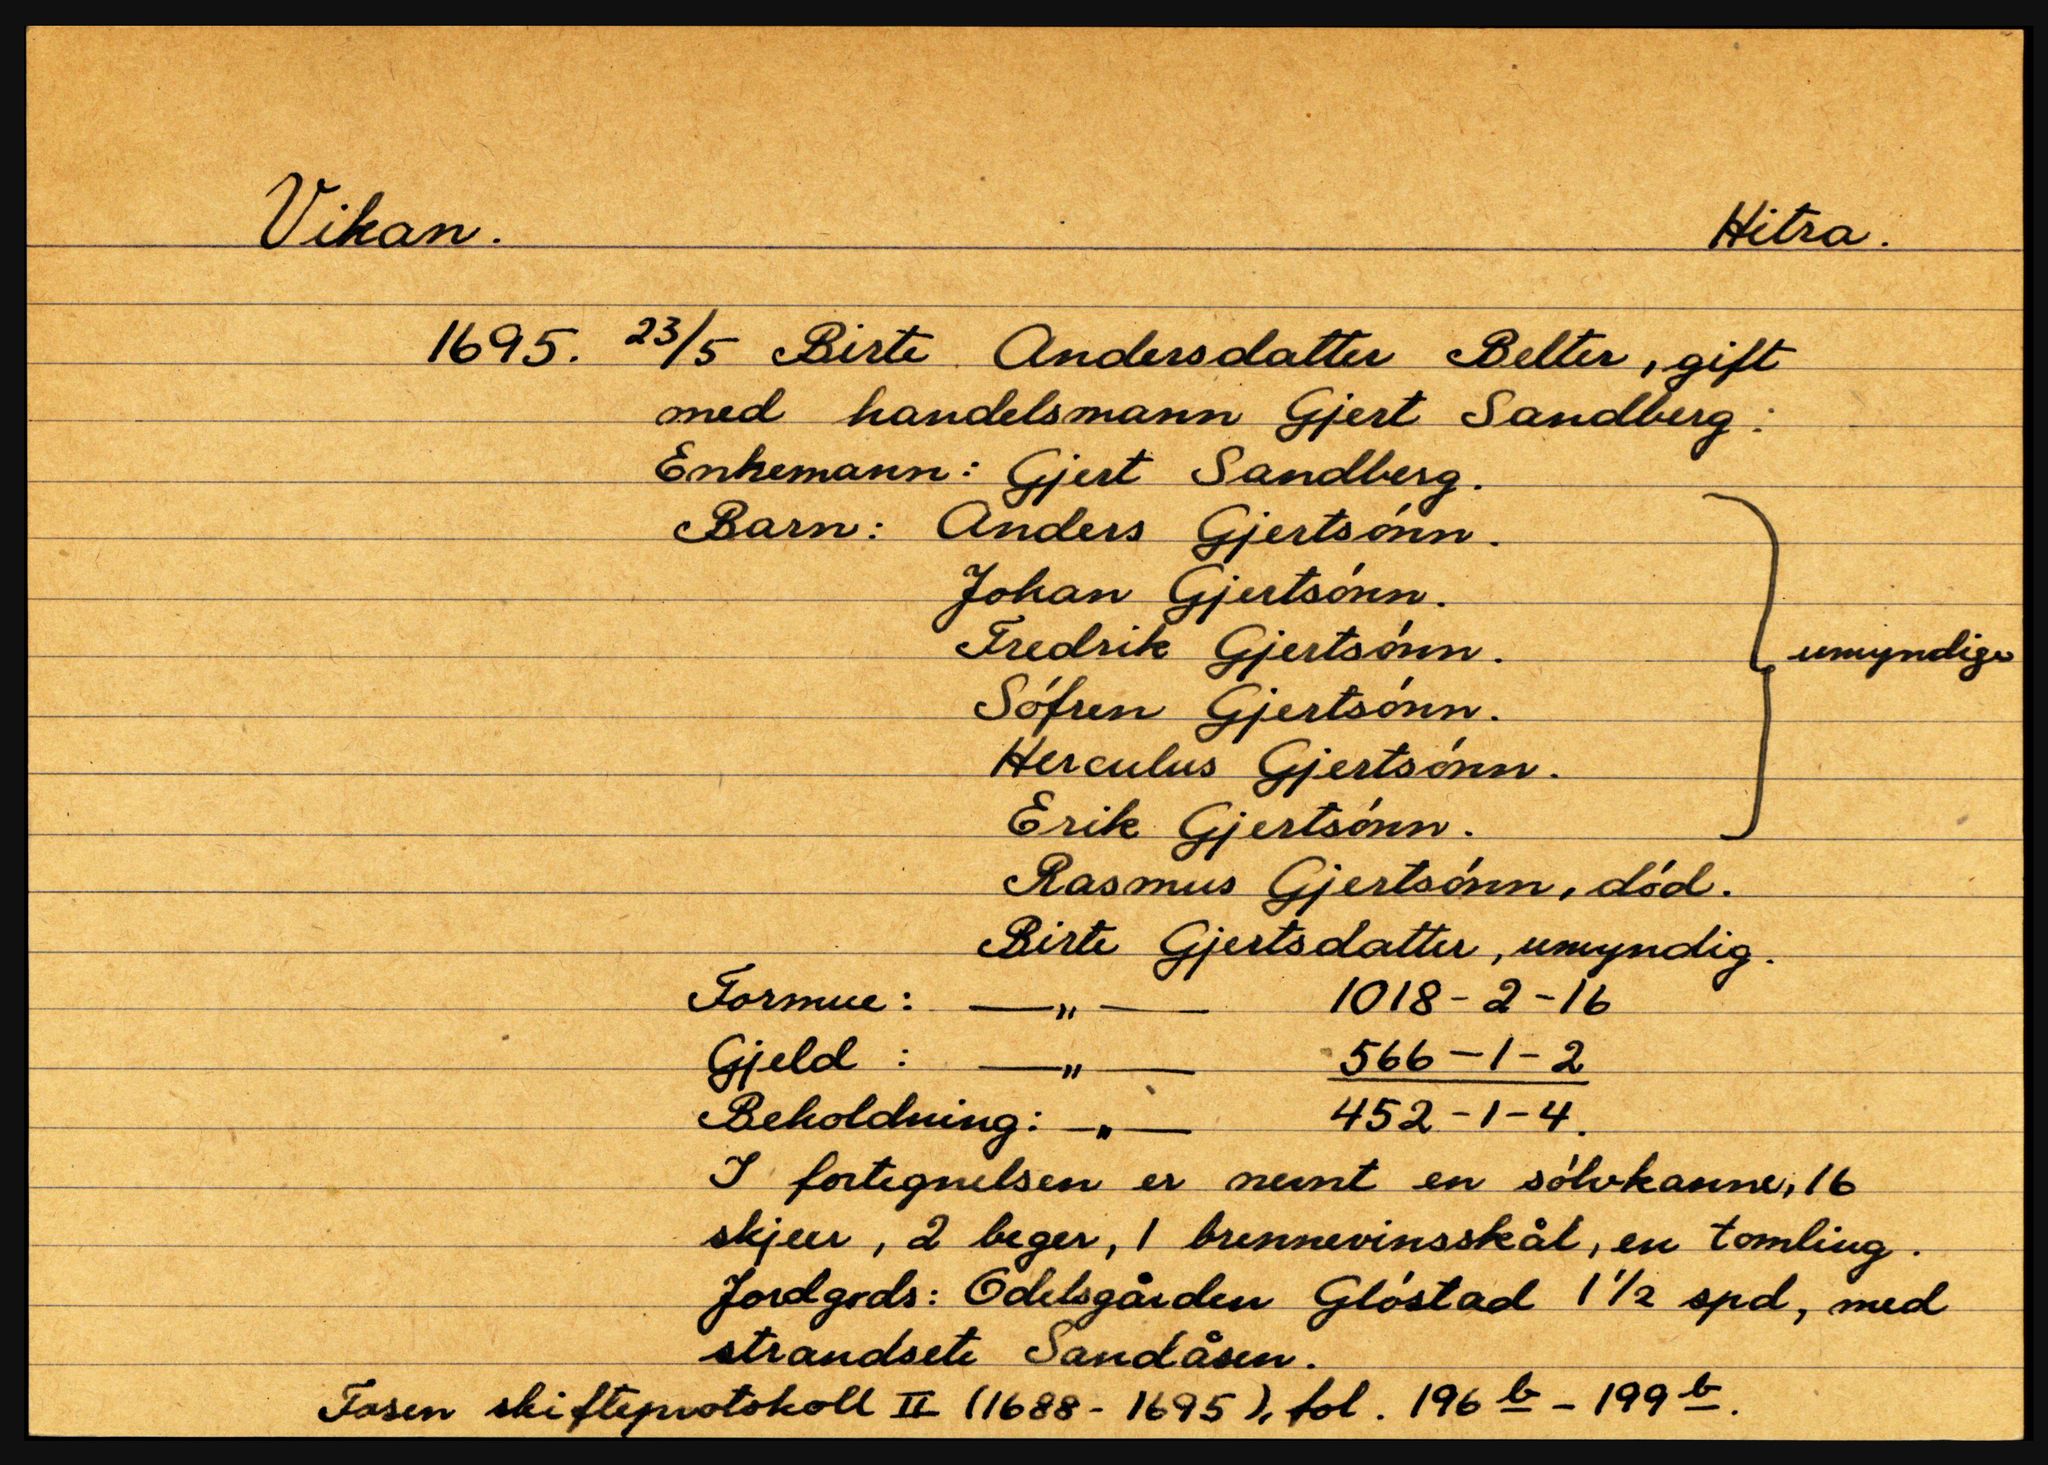 Vikan. Hitra.
1695. 23/5 Birte Andersdatter Belter, gift
med handelsmann Gjert Sandberg:
Enkemann: Gjert Sandberg.
Barn: Anders Gjertsónn.
Johan Gjertsónn.
Fredrik Gjertsónn.
umyndige
Sófren Gjertsónn.
Herculus Gjertsónn.
Erik Gjertsónn.
Rasmus Gjertsónn, dód.
Birte Gjertsdatter, umyndig.
Formue: —"— 1018-2-16
Gjeld : —"— 566-1-2
Beholdning: -"— 452-1-4.
I fortegnelsen er nevnt en sólvkanne, 16
skjeer, 2 beger, 1 brennevinsskål, en tomling.
Jordgods: Odelsgården Glóstad 1 1/2 spd, med
strandsete Sandåsen.
Fosen skifteprotokoll II (1688-1695), fol. 196 b - 199 b.